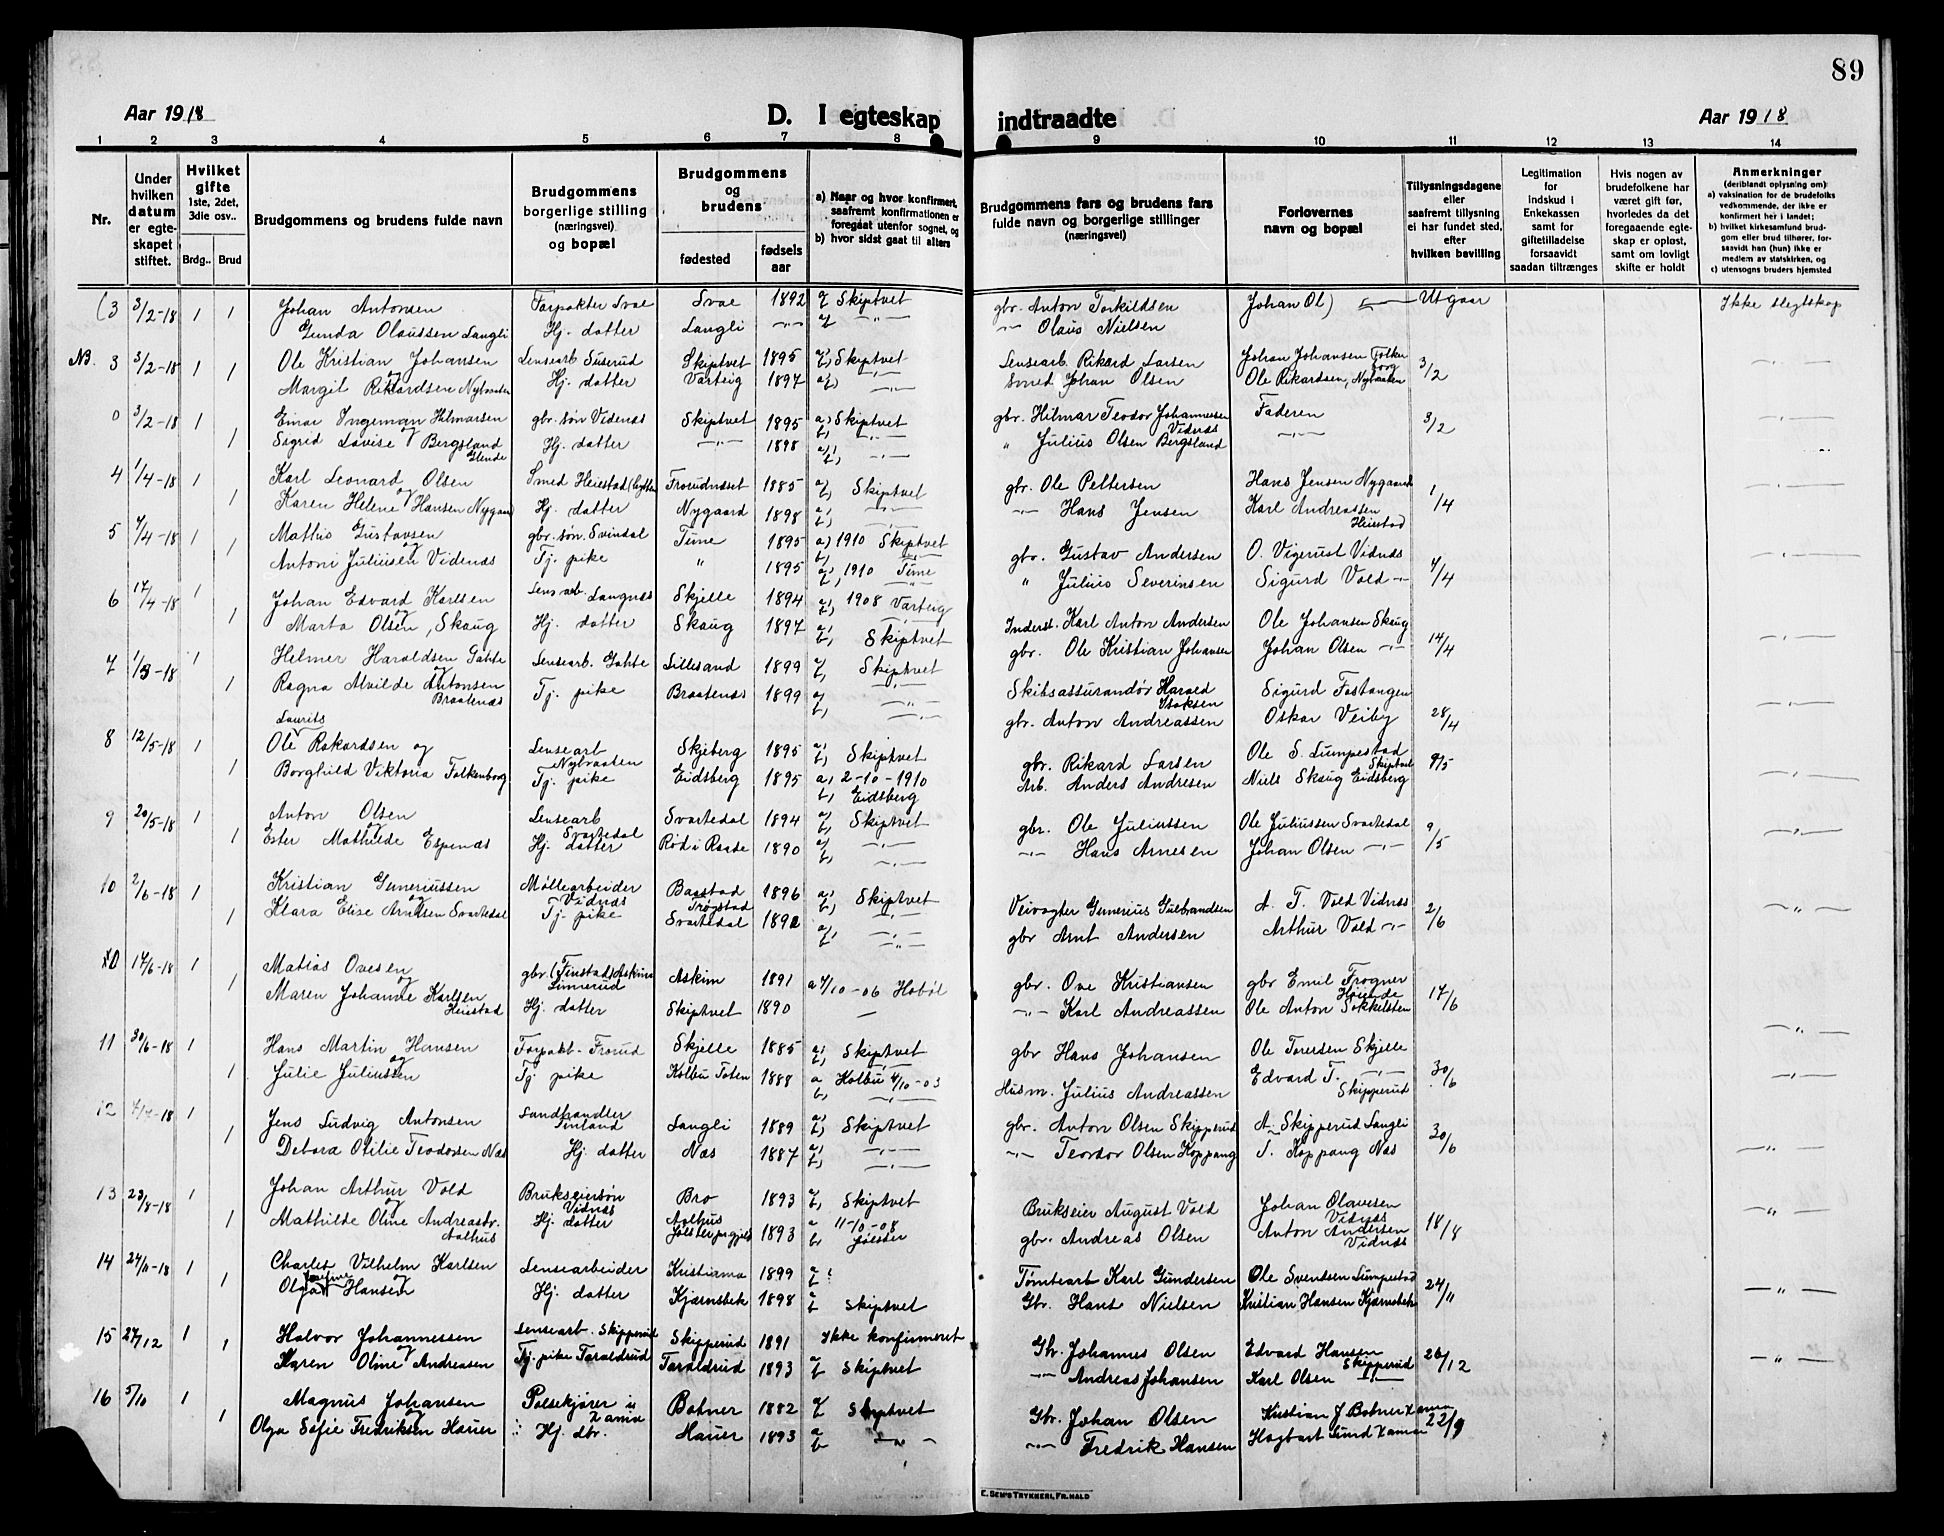 89
Aar 1918
D. I egteskap indtraadte
Aar 1918
1 2 3 4 5 6 7 8 9 10 11 12 13 14
Nr.
Under hvilken datum er egteskapet stiftet.
Hvilket gifte 1ste, 2det, 3die osv..
Brdg.. Brud
Brudgommens og brudens fulde navn
Brudgommens borgerlige stilling (næringsvei) og bopæl
Brudgommens og brudens
fødested
fødselsaar
a) Naar og hvor konfirmert, saafremt konfirmationen er foregaat utenfor sognet, og
b) hvor sidst gaat til alters
Brudgommens fars og brudens fars fulde navn og borgerlige stillinger (næringsvei)
Forlovernes navn og bopæl
Tillysningsdagene eller saafremt tillysning ei har fundet sted, efter hvilken bevilling
Legitimation for Indskud i Enkekassen samt for giftetilladelse forsaavidt saadan tiltrænges
Hvis nogen av brudefolkene har været gift før, hvorledes da det foregaaende egteskap er opløst, samt om lovligt skifte er holdt
Anmerkninger (deriblandt oplysning om)
a) vaksination for de brudefolks vedkommende, der ikke er konfirmert her i landet;
b) hvilket kirkesamfund brudgom eller brud tilhører, forsaavidt han (hun) ikke er medlem av statskirken, og
c) utensogns bruders hjemsted
(3 3/2-18 1 1 Johan Antonsen Forpakter Svae Svae 1892 Skiptvet gbr. Anton Torkildsen Johan Ol) Utgaar Ikke slegtskap
Gunda Olaussen Langli Hj. datter Langli -„- -„- Olaus Nielsen
NB. 3 3/2-18 1 1 Ole Kristian Johansen Lensearb Suserud Skiptvet 1895 Skiptvet Lensearb. Rikard Larsen Johan Johansen Folkenborg 3/2 -„-
og Margit Rikardsen Nybraaten Hj. datter Varteig 1897 a) -„- Smed Johan Olsen Ole Rikardsen, Nybraaten
0 3/2-18 1 Einar Ingeman Hilmarsen gbr. søn Vidnæs Skiptvet 1895 a) Skiptvet gbr. Hilmar Teodor Johannessen Vidnæs Faderen 3/2 -„-
1 og Sigrid Lovise Bergsland Glende Hj. datter -„- 1898 -„- „ Julius Olsen Bergsland -„-
4 1/4-18 1 Karl Leonard Olsen Smed Heiestad Frorudnæset 1885 Skiptvet gbr. Ole Pettersen Hans Jensen Nygaard 1/4 -„-
1 og Karen Helene Hansen Nygaard Hj. datter Nygaard 1898 -„- -„- Hans Jensen Karl Andreassen Heiestad
5 7/4-18 1 Mathis Gustavsen gbr. søn. Svindal Tune 1895 a) 1910 Skiptvet gbr. Gustav Andersen O. Vigerust Vidnæs 7/4 -„-
1 og Antoni Juliussen Vidnæs Tj. pike „ 1895 1910 Tune „ Julius Severinsen Sigurd Vold -„-
6 17/4-18 1 Johan Edvard Karlsen Lensarb. Langnæs Skjelle 1894 1908 Varteig Inderst. Karl Anton Andersen Ole Johansen Skaug 14/4 -„-
1 og Marta Olsen, Skaug Hj. datter Skaug 1897 Skiptvet gbr. Ole Kristian Johansen Johan Olsen -„-
7 1/5-18 1 Helmer Haraldsen Gahte Lensearb. Gahte Lillesand 1899 Skiptvet Skibsassurandør Harald Isaksen Sigurd Fostangen 28/4 -„-
1 og Ragna Alvilde Antonsen Braatenæs Tj. pike Braatenæs 1899 a) b) -„- gbr. Anton Andreassen Oskar Veiby
8 12/5-18 1 Ole Laurits Rikardsen og Lensearb Nybraaten Skjeberg 1895 a) b) Skiptvet gbr. Rikard Larsen Ole S. Lumpestad Skiptvet 9/5 -„-
1 Borghild Viktoria Folkenborg Tj. pike Eidsberg 1895 a) 2-10-1910 b) Eidsberg Arb. Anders Andresen Niels Skaug Eidsberg
9 20/5-18 1 Anton Olsen Lensearb Svartedal Svartedal 1894 Skiptvet gbr. Ole Juliussen Ole Juliussen Svartedal 9/5 -„-
1 og Ester Mathilde Espenæs Hj. datter Rød i Raade 1890 -„- -„- Hans Arnesen Johan Olsen -„-
10 2/6-18 1 Kristian Guneriussen Møllearbeider Vidnæs Baastad Trøgstad 1896 Skiptvet Veivogter Gunerius Gulbrandsen A. T. Vold Vidnæs 2/6 -„-
1 og Klara Elise Arntsen Svartedal Tj. pike Svartedal 1892 -„- gbr Arnt Andersen Arthur Vold -„-
10 17/6-18 1 Matias Ovesen gbr. (Finstad) Askim Linnerud Askim 1891 a 7/10-06 Hobøl gbr. Ove Kristiansen gbr Emil Frogner 17/6 -„-
1 og Maren Johanne Karlsen Heiestad Hj. datter Skiptvet 1890 — -„- Karl Andreassen Ole Anton Sokkelsten
11 30/6-18 1 Hans Martin Hansen Forpakt. Frorud Skjelle 1885 Skiptvet gbr Hans Johansen Ole Toresen Skjelle 30/6 -„-
1 og Julie Juliussen Tj. pike Kolbu Toten 1888 a Kolbu 4/10-03 b -„- Husm. Julius Andreassen Edvard T. -„- Skipperud
12 7/7-18 1 Jens Ludvig Antonsen Landhandler Finland Langli 1889 Skiptvet gbr. Anton Olsen Skipperud A. Skipperud Langli 30/6 -„-
1 Debora Otilie Teodorsen Næs Hj. datter Næs 1887 -„- -„- Teordor Olsen Koppang T. Koppang Næs
13 23/8-18 1 Johan Arthur Vold Brukseiersøn Vidnæs Bro 1893 Skiptvet Brukseier August Vold Johan Olavesen Vidnæs 18/8 -„-
1 og Mathilde Oline Andreasdtr. Aalhus Hj. datter Aalhus Jølster prgjeld 1893 a 11-10-08 b Jølster gbr. Andreas Olsen Anton Andersen Vidnæs
14 24/11-18 1 Charles Vilhelm Karlsen Lensearbeider Kristiania 1899 Tømtearb Karl Gundersen Ole Svendsen Lumpestad 24/11 -„-
1 og Olga Josefine Hansen Hj. datter Kjærnsbek 1898 Skiptvet Gbr. Hans Nielsen Kristian Hansen Kjærnsbek
15 27/12 1 Halvor Johannessen Lensearb. Skipperud Skipperud 1891 Ikke konfirmeret Gbr. Johannes Olsen Edvard Hansen Skipperud 26/12 -„-
1 og Karen Oline Andreasen Tj. pike Taraldrud Taraldrud 1893 Skiptvet -„- Andreas Johansen Karl Olsen -„-
16 5/10 1 Magnus Johansen Pølsekjører Botner 1882 Skiptvet Gbr. Johan Olsen Kristian J Botner 22/9
1 og Olga Sofie Fredriksen Hauer Hj. dtr. Hauer 1893 a b -„- -„- Fredrik Hansen Hagbart Lund
E. SEM'S TRYKKERI, FR.HALD